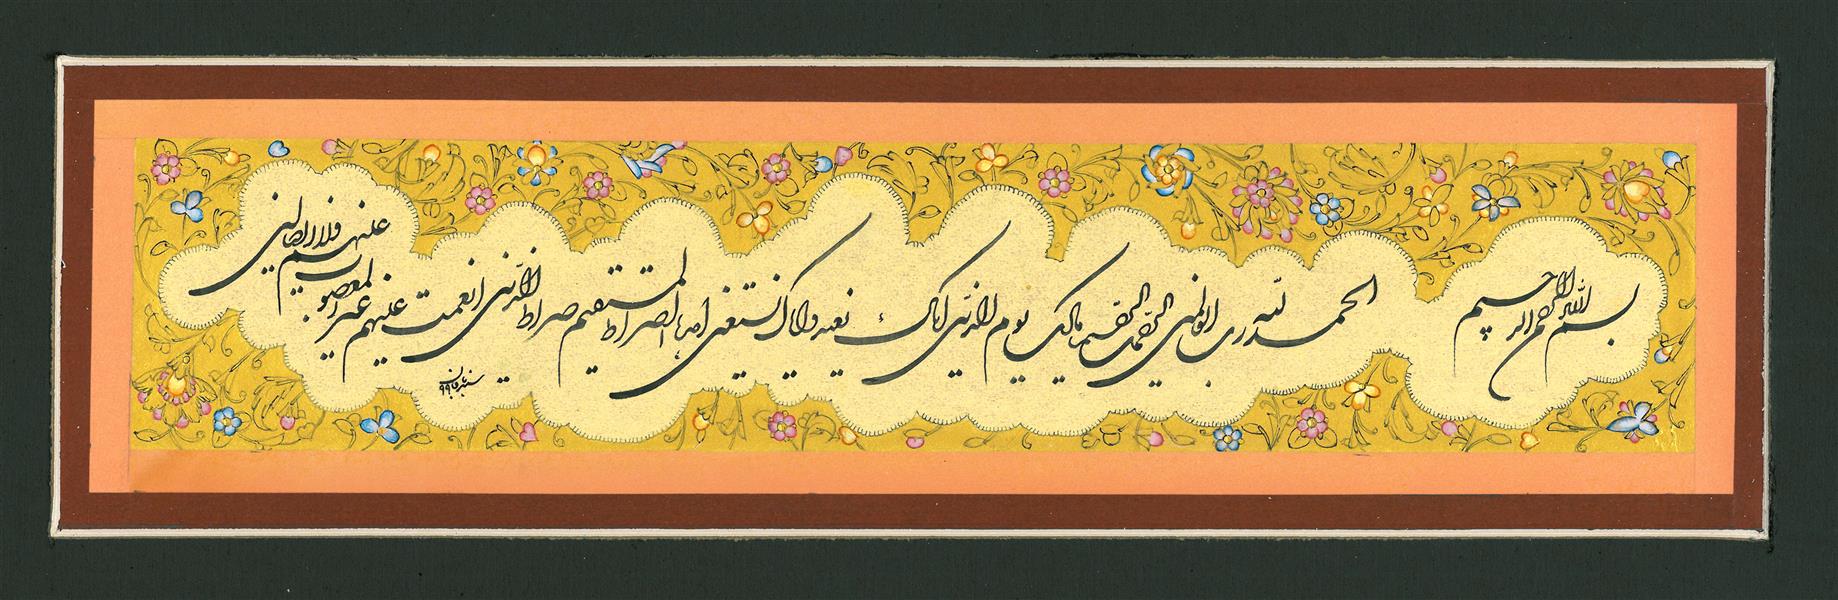 بسم الله الرحمن الرحیم
الحمد لله رب العالمین الرحمن الرحیم مالک یوم الدین ایاک نعبد و ایاک نستعین اهدنا الصراط المستقیم صراط الذین انعمت علیهم غیر المغضوب علیهم و لا الضالین